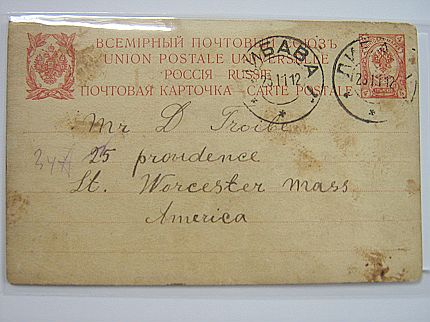 ВСЕМІРНЫЙ ПОЧТОВЫЙ СОЮЗЪ
UNION POSTALE UNIVERSELLE
РОССІЯ RUSSIE
ПОЧТОВАЯ КАРТОЧКА – CARTE POSTALE
ЛИБАВА
12
ЛИ
12
Mr D
25 providence
St. Worcester Mass
America